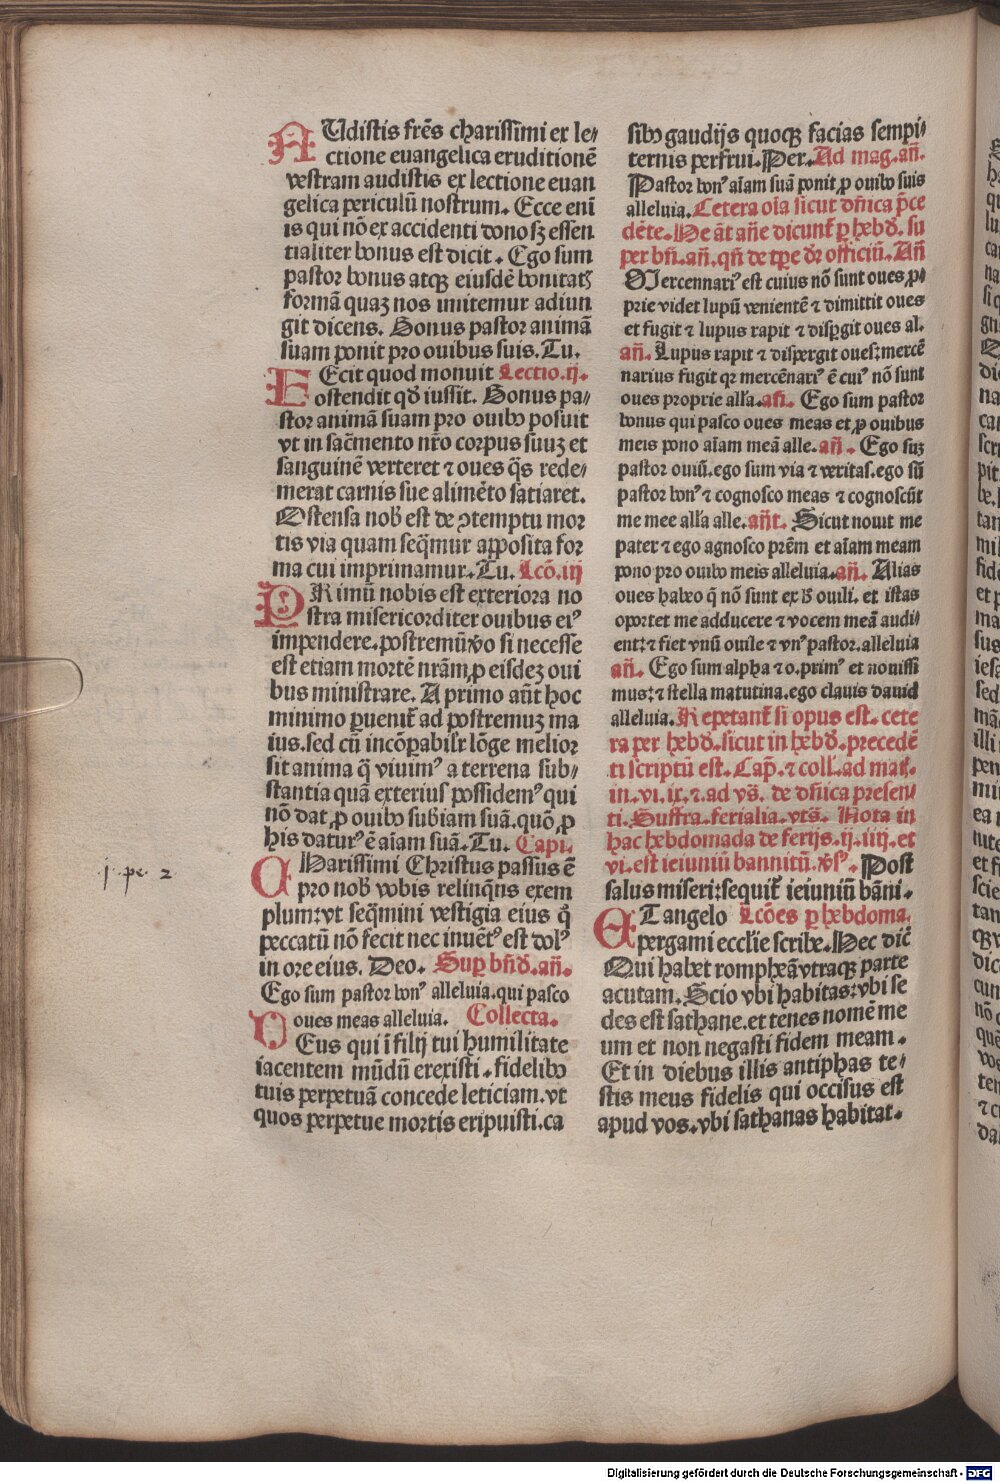 AUdistis frēs charissimi ex le/
ctione euangelica eruditionē
vestram audistis ex lectione euan
gelica periculū nostrum. Ecce eni
is qui nō ex accidenti dono sꝫ essen
tialiter bonus est dicit. Ego sum
pastor bonus atqꝫ eiusdē bonitatꝭ
formā quaꝫ nos imitemur adiun
git dicens. Bonus pastor animā
suam ponit pro ouibus suis. Tu.
FEcit quod monuit Lectio.ij.
ostendit qđ iussit. Bonus pa/
stor animā suam pro ouibꝰ posuit
vt in sac̄mento nr̄o corpus suuꝫ et
sanguinē verteret ⁊ oues q̄s rede/
merat carnis sue alimēto satiaret.
Ostensa nob̄ est de ꝯtemptu mor
tis via quam seq̄mur apposita for
ma cui imprimamur. Tu. Lcō.iij
PRimū nobis est exteriora no
stra misericorditer ouibus eiꝰ
impendere. postremū v̄o si necesse
est etiam mortē nrām ꝓ eisdeꝫ oui
bus ministrare. A primo aūt hoc
minimo ꝑuenit᷑ ad postremuꝫ ma
ius. sed cū incōꝑabilr̄ lōge melior
sit anima q̄ viuimꝰ a terrena sub/
stantia quā exterius possidemꝰ qui
nō dat ꝓ ouibꝰ subiam suā. quō ꝓ
his daturꝰ ē aīam suā. Tu. Capi.
CHarissimi Christus passus ē
pro nob̄ vobis relinq̄ns exem
plum: vt seq̄mini vestigia eius q̄
peccatū nō fecit nec inuētꝰ est dolꝰ
in ore eius. Deo. Suꝑ bn̄d̄. añ.
Ego sum pastor bonꝰ alleluia. qui pasco
oues meas alleluia. Collecta.
DEus qui ī filij tui humilitate
iacentem mūdū erexisti. fidelibꝰ
tuis perpetuā concede leticiam. vt
quos perpetue mortis eripuisti. ca
j. pe. 2
sibꝰ gaudijs quoqꝫ facias sempi/
ternis perfrui. Per. Ad mag. añ.
Pastor bonꝰ aīam suā ponit ꝓ ouibꝰ suis
alleluia. Cetera oīa sicut dn̄ica p̄ce
dēte. He āt añe dicunt᷑ ꝑ hebd̄. su
per bn̄. añ. qn̄ de tp̄e dr̄ officiū. Añ
Mercennariꝰ est cuius nō sunt oues ꝓ/
prie videt lupū venientē ⁊ dimittit oues
et fugit ⁊ lupus rapit ⁊ disꝑgit oues al.
añ. Lupus rapit ⁊ dispergit oues: mercē
narius fugit qꝛ mercēnariꝰ ē cuiꝰ nō sunt
oues proprie alla. añ. Ego sum pastor
bonus qui pasco oues meas et ꝓ ouibus
meis pono aīam meā alle. añ. Ego suꝫ
pastor ouiū. ego sum via ⁊ veritas. ego sū
pastor bonꝰ ⁊ cognosco meas ⁊ cognoscūt
me mee alla alle. añt. Sicut nouit me
pater ⁊ ego agnosco prēm et aīam meam
pono pro ouibꝰ meis alleluia. añ. Alias
oues habeo q̄ nō sunt ex b̄ ouili. et istas
oportet me adducere ⁊ vocem meā audi/
ent: ⁊ fiet vnū ouile ⁊ vnꝰ pastor. alleluia
añ. Ego sum alpha ⁊ o. primꝰ et nouissi
mus: ⁊ stella matutina. ego clauis dauid
alleluia. Repetant᷑ si opus est. cete
ra per hebd̄. sicut in hebd̄. precedē
ti scriptū est. Cap̄. ⁊ coll. ad mat̄.
in. vi. ix. ⁊. ad vs̄. de dn̄ica presen/
ti. Suffra. ferialia. vts̄. Nota in
hac hebdomada de ferijs. ij. iiij. et
vi. est ieiuniū bannitū. v̄sꝰ. Post
salus miseri: sequit᷑ ieiuniū bāni.
ET angelo Lcōes ꝑ hebdoma.
pergami ecclie scribe. Hec dic̄
Qui habet romphēā vtraqꝫ parte
acutam. Scio vbi habitas: vbi se
des est sathane. et tenes nomē me
um et non negasti fidem meam.
Et in diebus illis antiphas te/
stis meus fidelis qui occisus est
apud vos. vbi sathanas habitat.
Digitalisierung gefördert durch die Deutsche Forschungsgemeinschaft - DFG